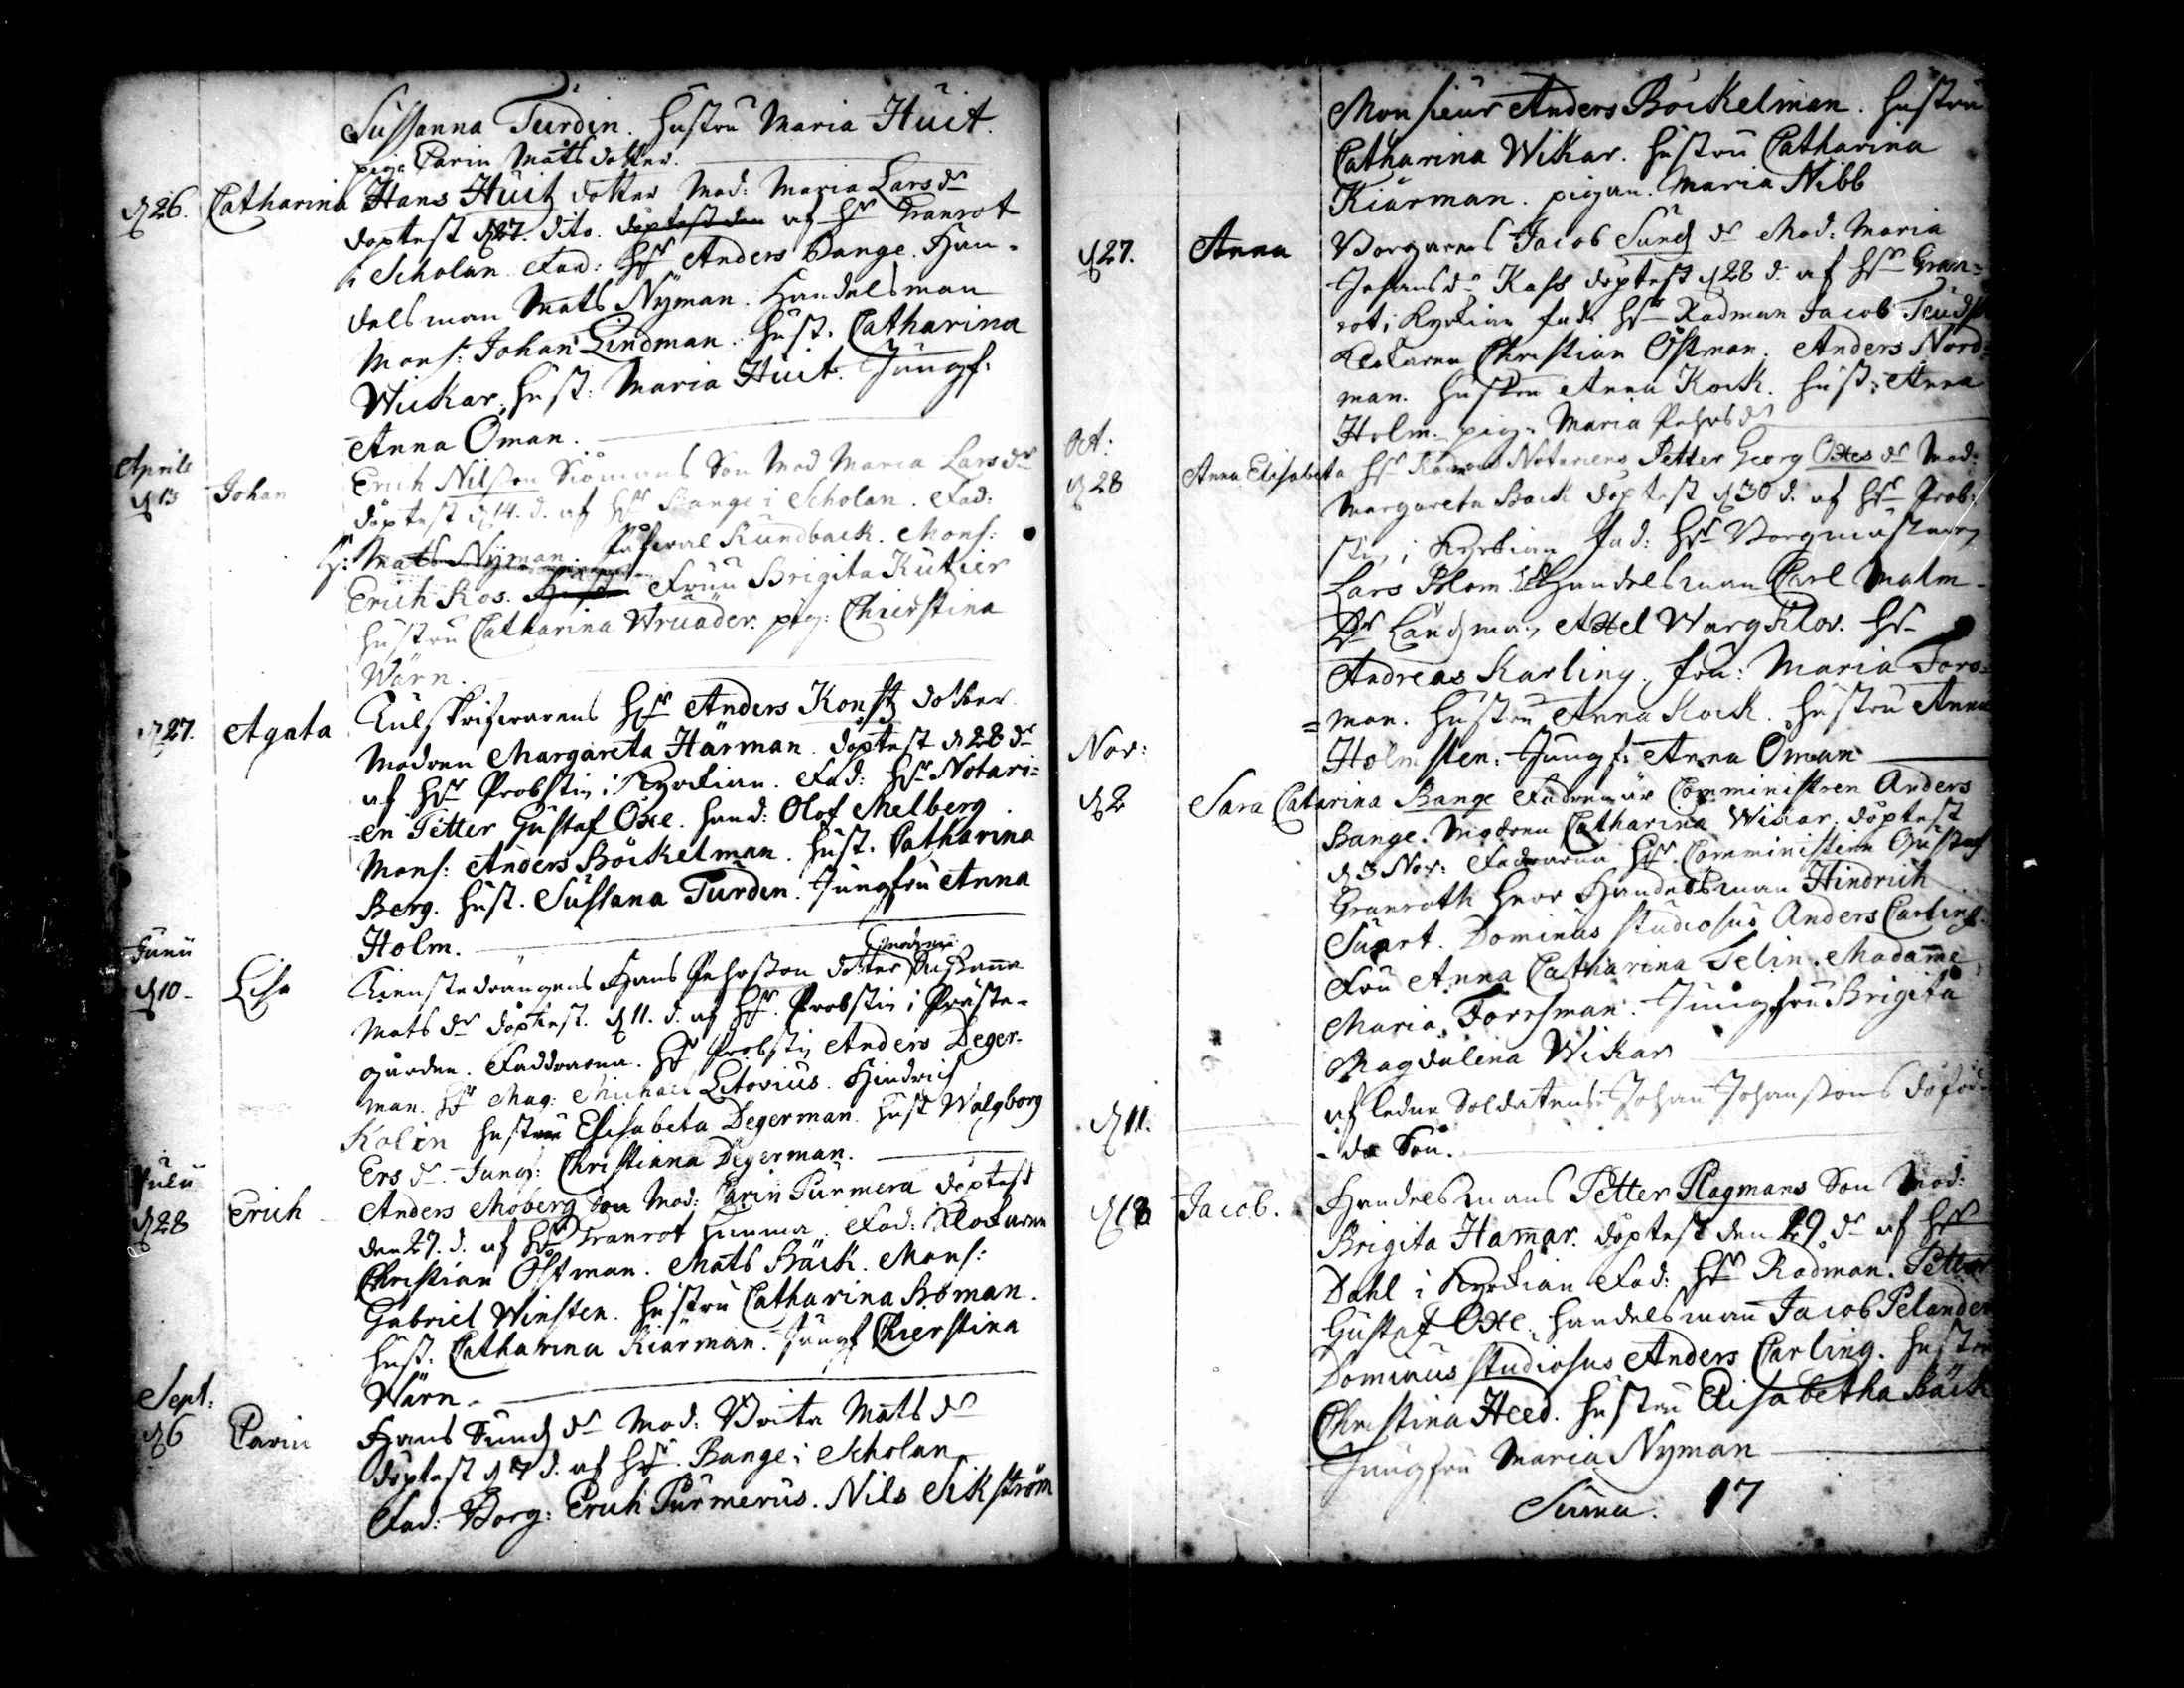 Sussanna Turdin. Hustru Maria Huit.
pig: Carin Matsdotter.
d 26. Catharina Hans Huitz dotter Mod: Maria Lars dr
döptest d 27. dito. döptest den af Hr Granrot
i Scholan. Fad: Hr Anders Bange. Han-
delsman Mats Nyman. Handelsman
Mons: Johan Lindman. Hust. Catharina
Wickar, hust: Maria Huit. Jungf:
Anna Öman.
Aprilis
d 13 Johan Erich Nilsson Siömans Son Mod Maria Lars dr
döptest d 14. d. af Hr Bange i Scholan. Fad:
H: Mats Nyman. Rundback. Mons:
Erich Ros. Fruu Brigita Kutzier
hustru Catharina Wruäder. pig: Chierstina
Wärn.
d 27. Agata Tulskrifwarens Hr Anders Konstz dotter
Modren Margareta Härman. döptest d 28 dr
af Hr Probstin i Kyrkian. Fad: Hr Notari=
=en Petter Gustaf Oxe. hand: Olof Melberg.
Mons: Anders Böckelman. Hust. Catharina
Berg. Hust. Sussana Turden. Jungfru Anna
Holm.
Junii
d 10 - Lisa Tienstedrängens Hans Pehrsson dotter modren Susanna
Mats dr döptest. d 11. d. af Hr. Probstin i Präste-
gården. Faddrarna. Hr Probstin Anders Deger-
man. Hr Mag: Michael Litovius. Hindrich
Kolin hustru Elisabeta Degerman. Hust Walgborg
Ers dr. Jungf: Christiana Degerman.
Julii
d 28 Erich Anders Moberg Son Mod: Carin Purmera döptest
den 29. d. af Hr Granrot hemma. Fad: Klockaren
Christian Östman. Mats Bäck. Mons:
Gabriel Winsten. hustru Catharina Broman.
hust. Catharina Kiärman. Jungf Chierstina
Wärn.
Sept:
d 6 Carin Hans Sundz dr Mod: Brita Mats dr
döptest d 7 d. af Hr. Bange i Scholan
Fad: Borg: Erich Purmerus. Nils Sikström
Monsieur Anders Böckelman. hustru
Catharina Wikar. hustru Catharina
Kiärman. pigan. Maria Nibb
d 27. Anna Borgarens Jacob Sundz dr Mod: Maria
Johans dr Kass döptest d 28 d. af Hr Gran=
rot i Kyrkian fad: Hr Radman Jacob
Klockaren Christian Östman. Anders Nord=
man. hustru Anna Kock. hust: Anna
Holm. pig: Maria Pehrs dr
Oct:
d 28 Anna Elisabeta Hr Notariens Petter Georg Oxes dr Mod:
Margareta Back döptest d 30 d. af Hr Prob:
stin i Kyrkian fad: Hr Borgmästaren
Lars Blom. Hr Handelsman Carl Malm-
Hr Landzman Axel Wargklov. Hr
Andreas Karling. fru: Maria Fors=
=man. hustru Anna Kock. hustru Anna
Holmsten. Jungf: Anna Öman
Nov:
d 2 Sara Catarina Bange Fadren är Comministren Anders
Bange. Modren Catharina Wikar. döptest
d 3 Nov: Faddrarna Hr. Comministern Gustaf
Granroth herr Handelsman Hindrich
Suart. Dominus studiosus Anders Carling.
Fru Anna Catharina Telin. Madamme
Maria Forrsman. Jungfru Brigita
Magdalena Wikar
d 11. afledne Soldatens Johan Johanssons döföd-
-da Son.
d 18 Jacob. Handelsmans Petter Plagmans Son Mod:
Brigita Hammar. döptest den 29 dr af Hr
Dahl i Kyrkian Fad: Hr Rådman. Petter
Gustaf Oxe. handelsman Jacob Pelander
Dominus studiosus Anders Carling. hustru
Christina Heed. hustru Elisabetha Bäck
Jungfru Maria Nyman
Summa. 17